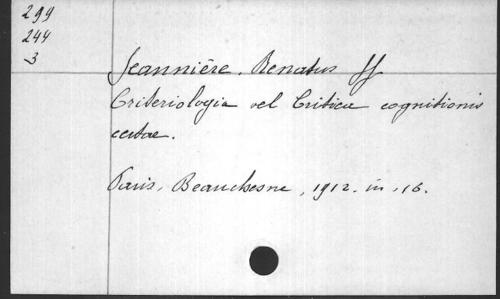 299
244
3
Jeannière. Renatus SJ
Criteriologia vel Critica cognitionis
certae.
Paris, Beauchesne, 1912. in. 16.